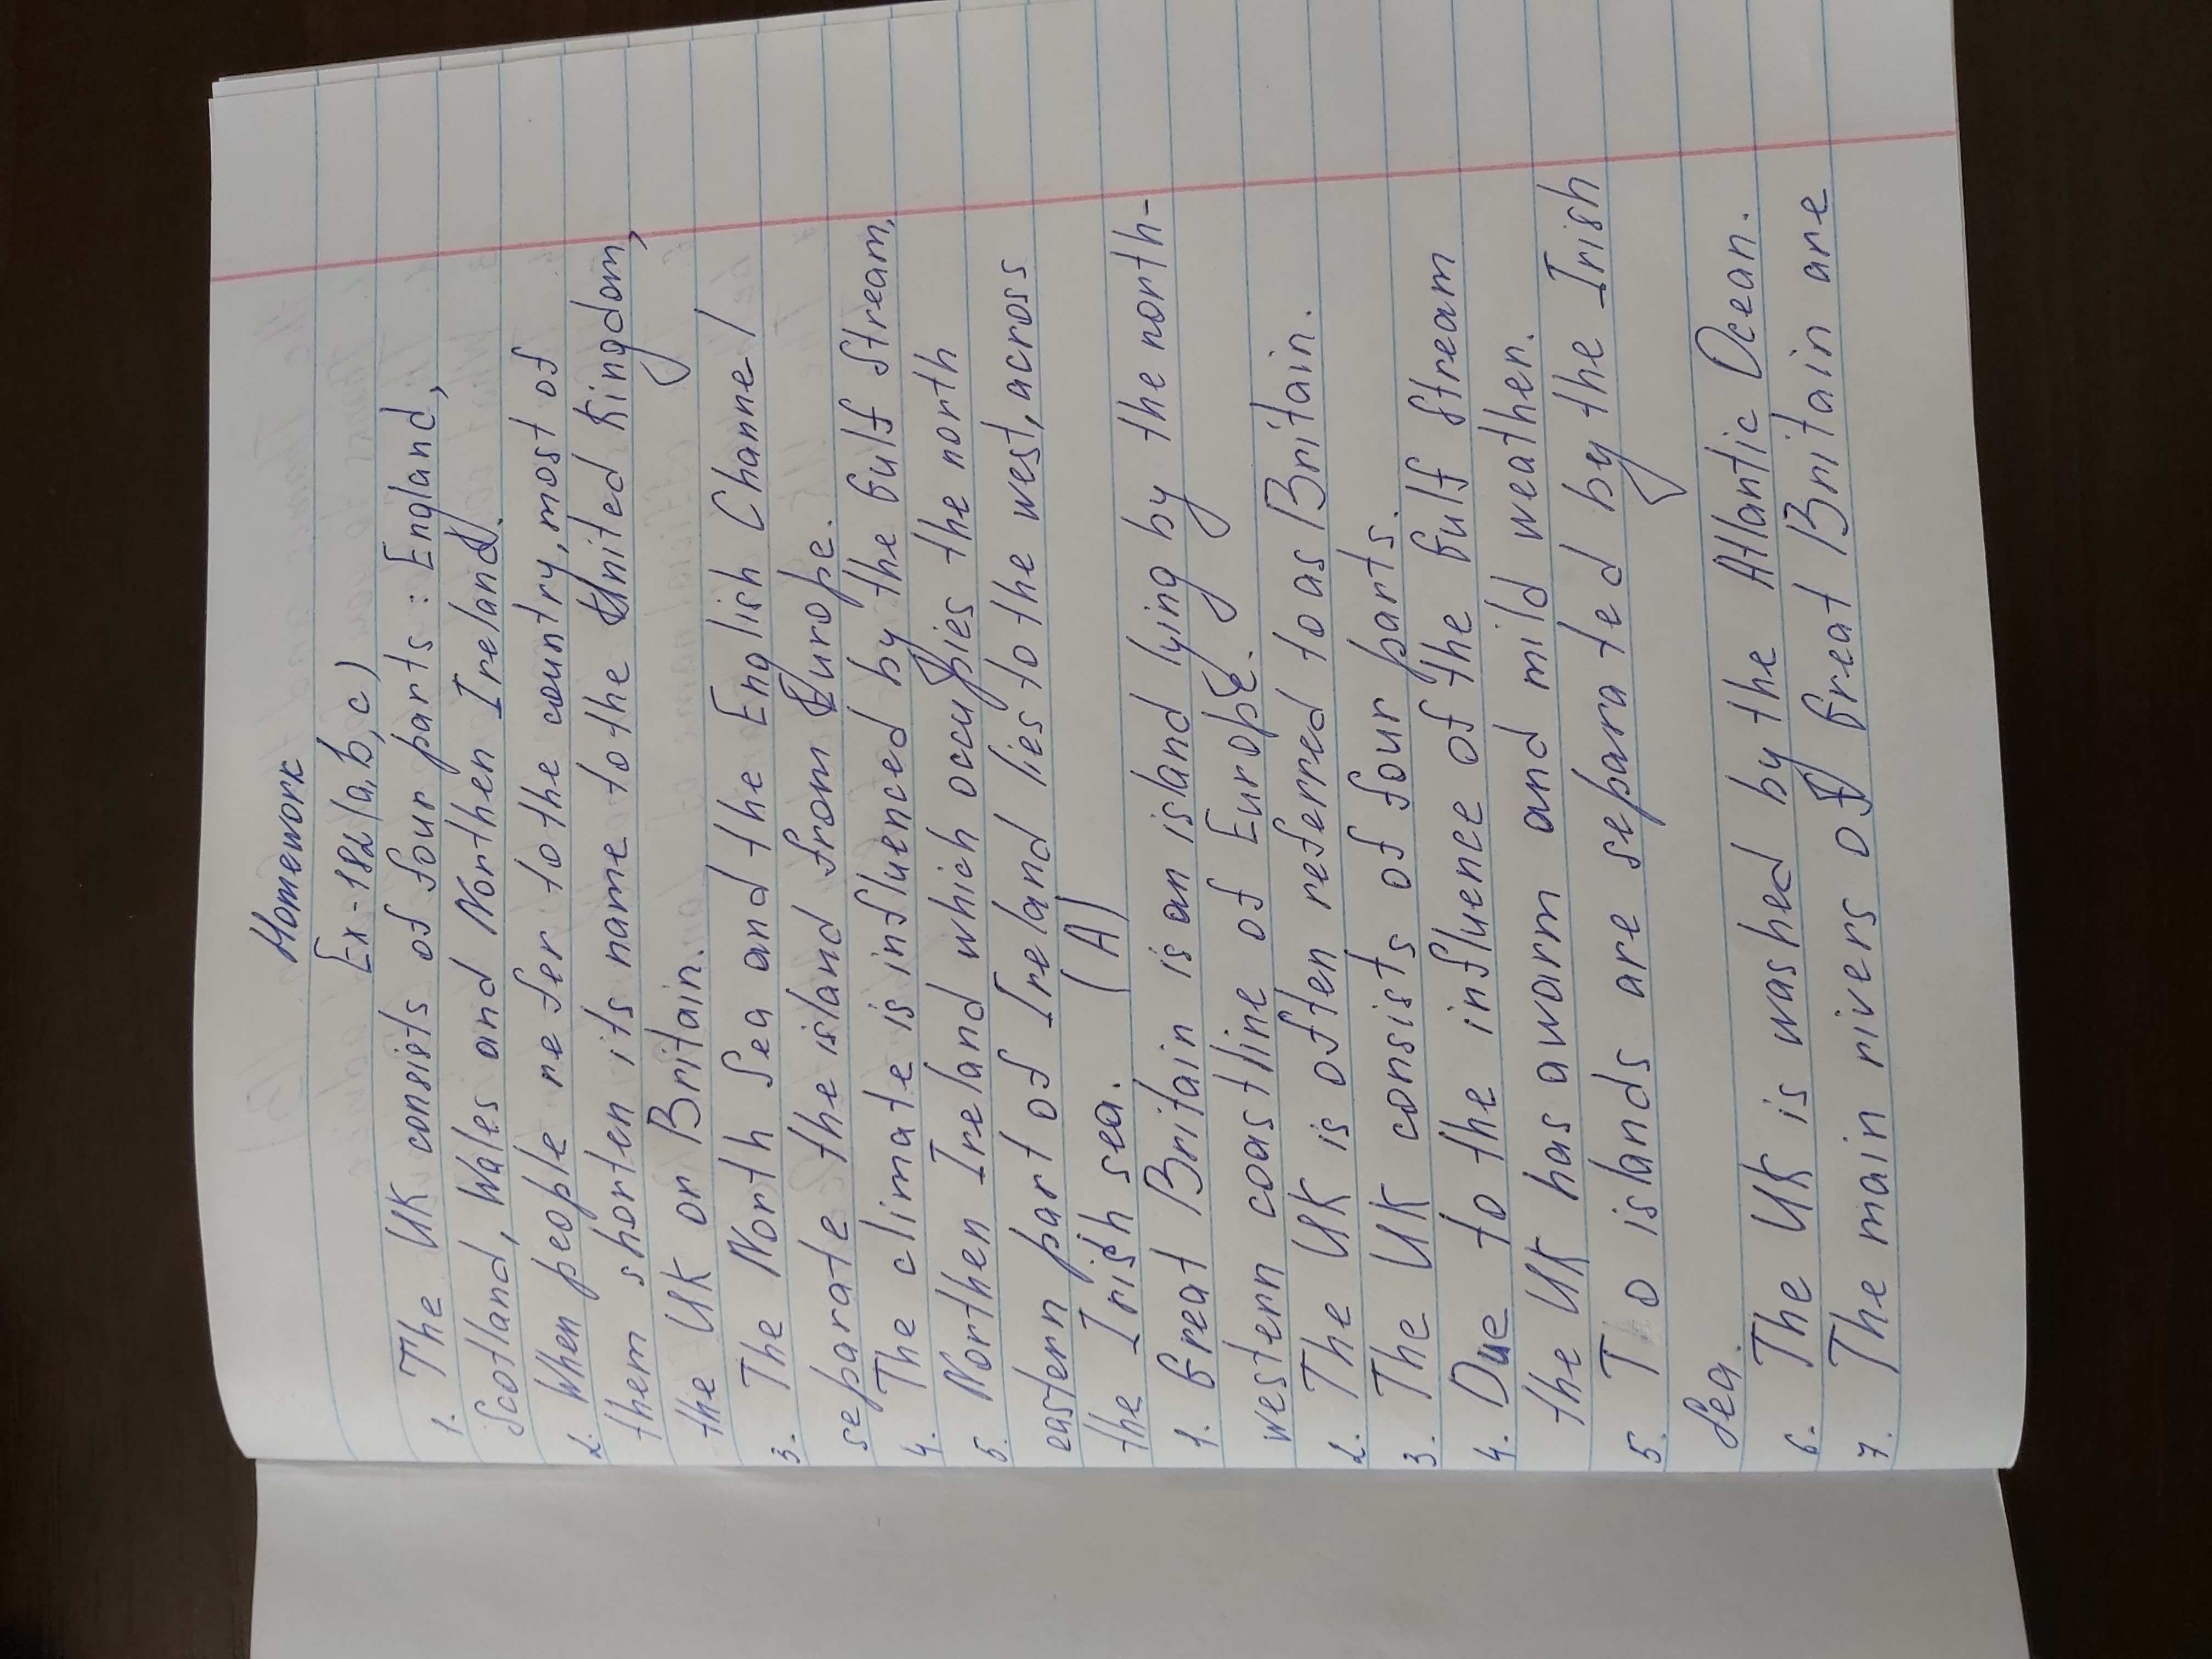 Homework
Ex-182(a,b,c)
1. The UK consists of four parts: England,
Scotland, Wales and Northen Ireland.
2. When people refer to the country, most of
them shorten its name to the United Kingdom,
the UK or Britain.
3. The North Sea and the English Channel
separate the island from Europe.
4. The climate is influenced by the Gulf Stream.
5. Northen Ireland which occupies the north
eastern part of Ireland lies to the west, across
the Irish sea. (A)
1. Great Britain is an island lying by the north-
western coastline of Europe.
2. The UK is often referred to as Britain.
3. The UK consists of four parts.
4. Due to the influence of the Gulf Stream
the UK has a warm and mild weather.
5. T o islands are separated by the Irish
Sea.
6. The UK is washed by the Atlantic Ocean.
7. The main rivers of Great Britain are